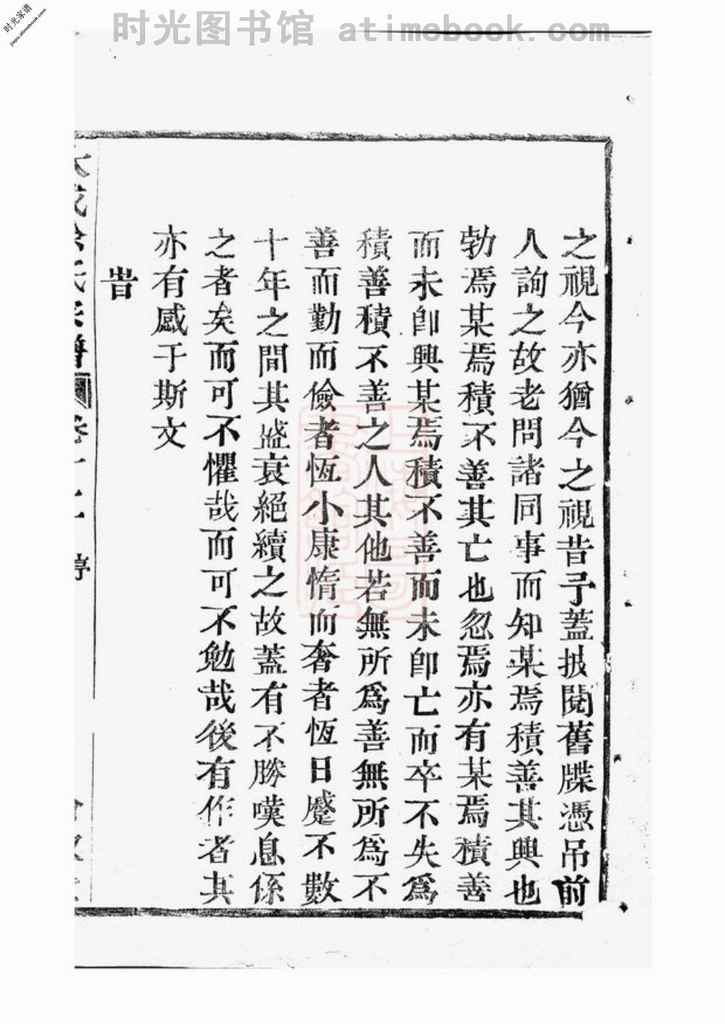 时光图书馆 atimebook.com
时光家谱
之視今亦猶今之視昔予蓋披閱舊牒憑吊前
人詢之故老問諸同事而知某焉積善其興也
勃焉某焉積不善其亡也忽焉亦有某焉積善
而未卽興某焉積不善而未卽亡而卒不失爲
積善積不善之人其他若無所爲善無所爲不
善而勤而儉者恆小康惰而奢者恆日蹙不數
十年之間其盛衰絕續之故蓋有不勝嘆息係
之者矣而可不懼哉而可不勉哉後有作者其
亦有感于斯文
旹
氏宗譜 卷十之一